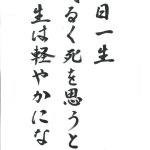 日一生
るく死を思うと
生は軽やかにな